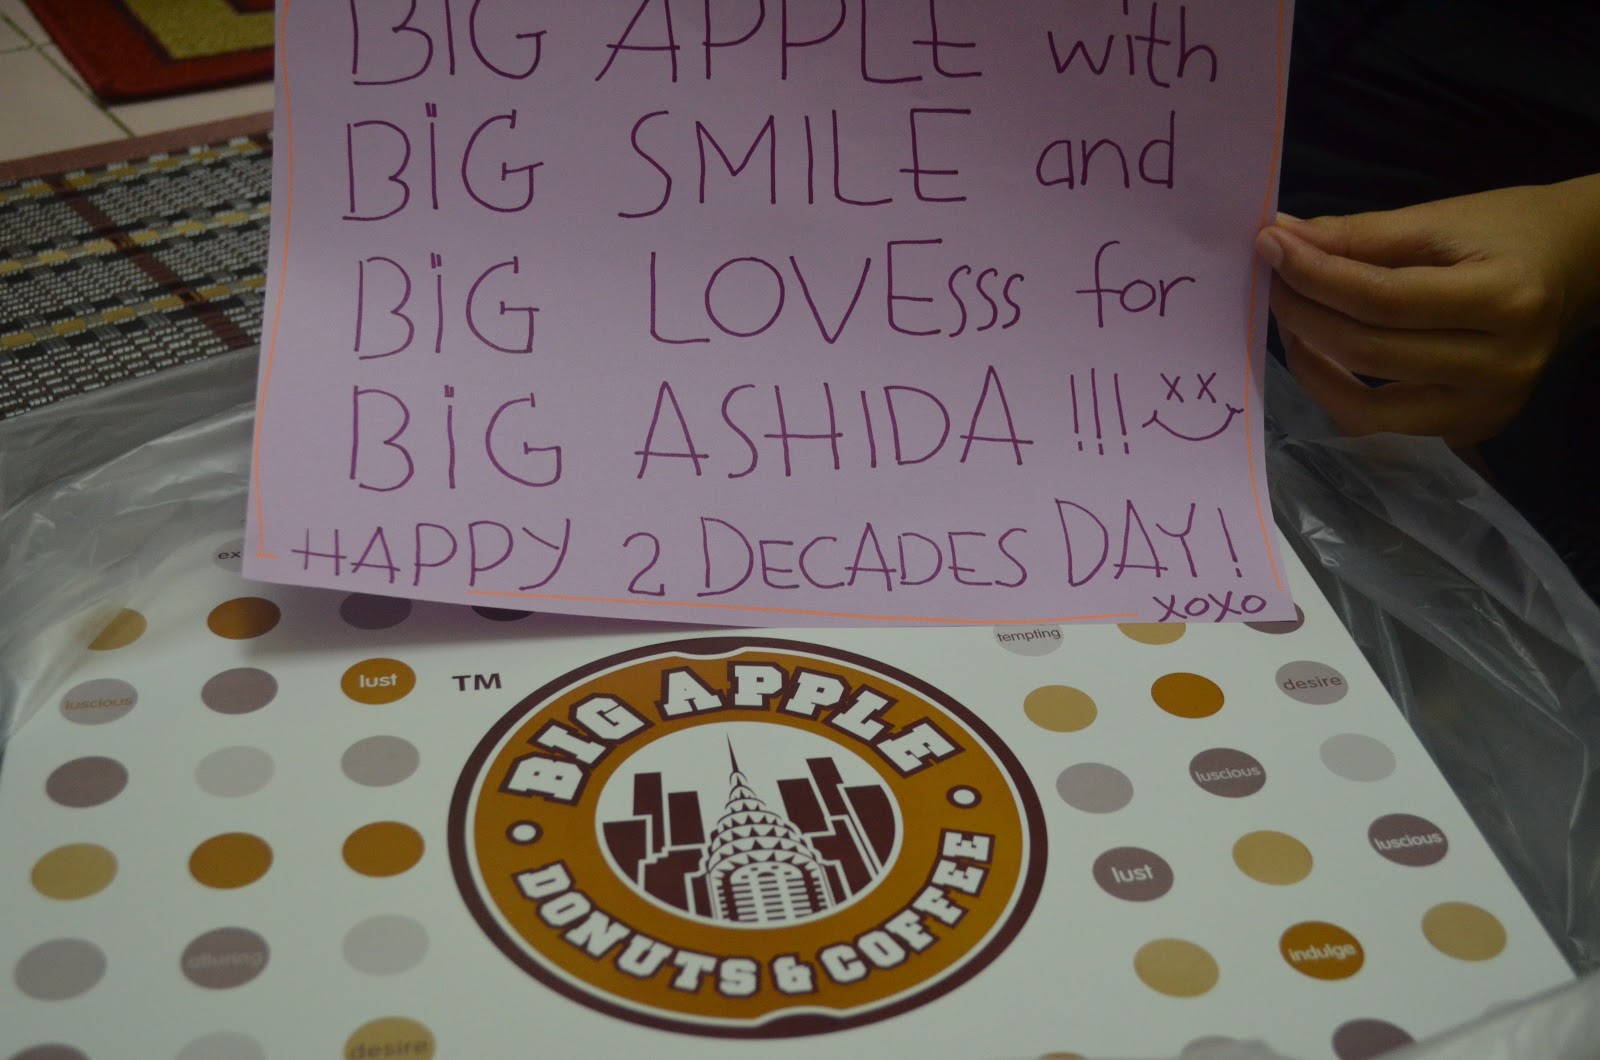 BIG APPLE with
BIG SMILE and
BIG LOVESSS for
BIG ASHIDA !!!
HAPPY 2 DECADES DAY!
xoxo
ex
tempting
lust
TM
desire
luscious
BIG APPLE
DONUTS & COFFEE
luscious
luscious
lust
alluring
indulge
desire